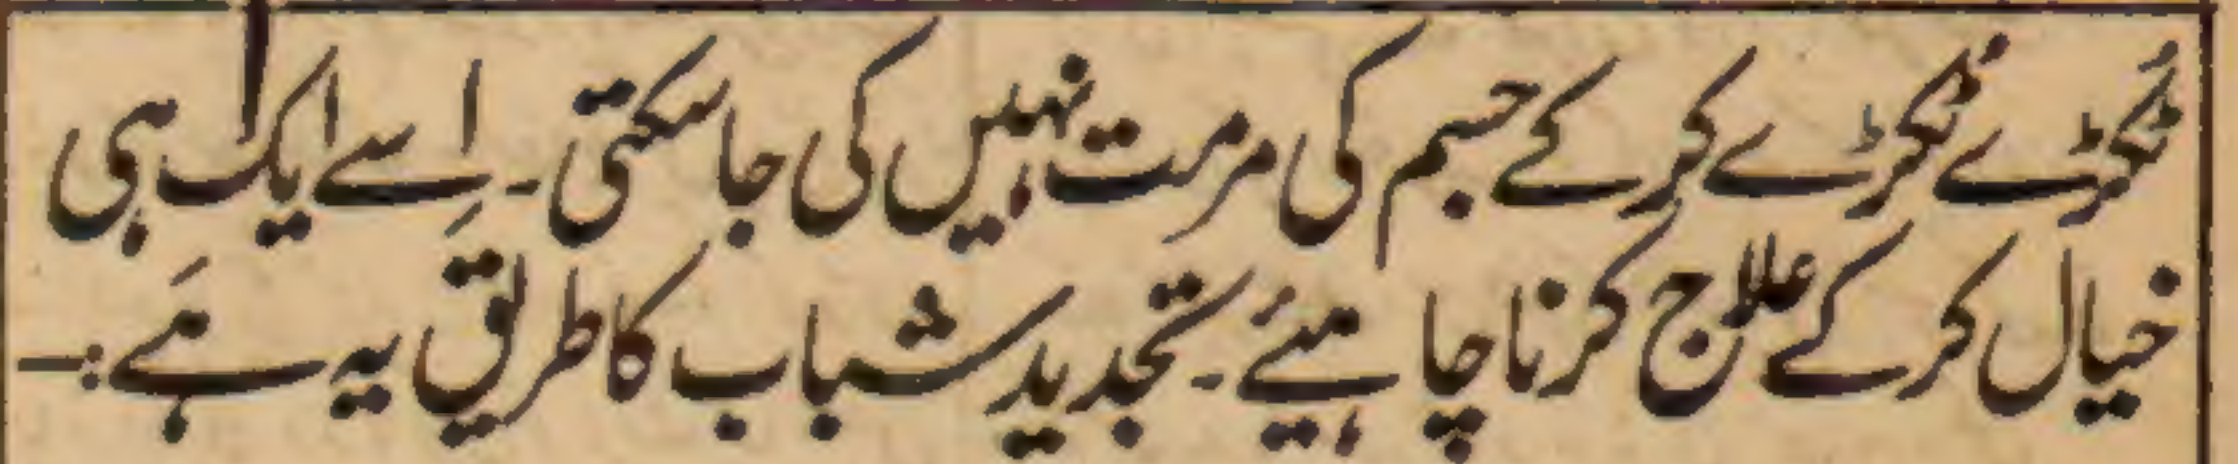 ٹکڑے ٹکڑے کر کے جسم کی مرمت نہیں کی جا سکتی۔ اِسے ایک ہی
خیال کر کے علاج کرنا چاہئیے۔ تجدید شباب کا طریق یہ ہَے:۔